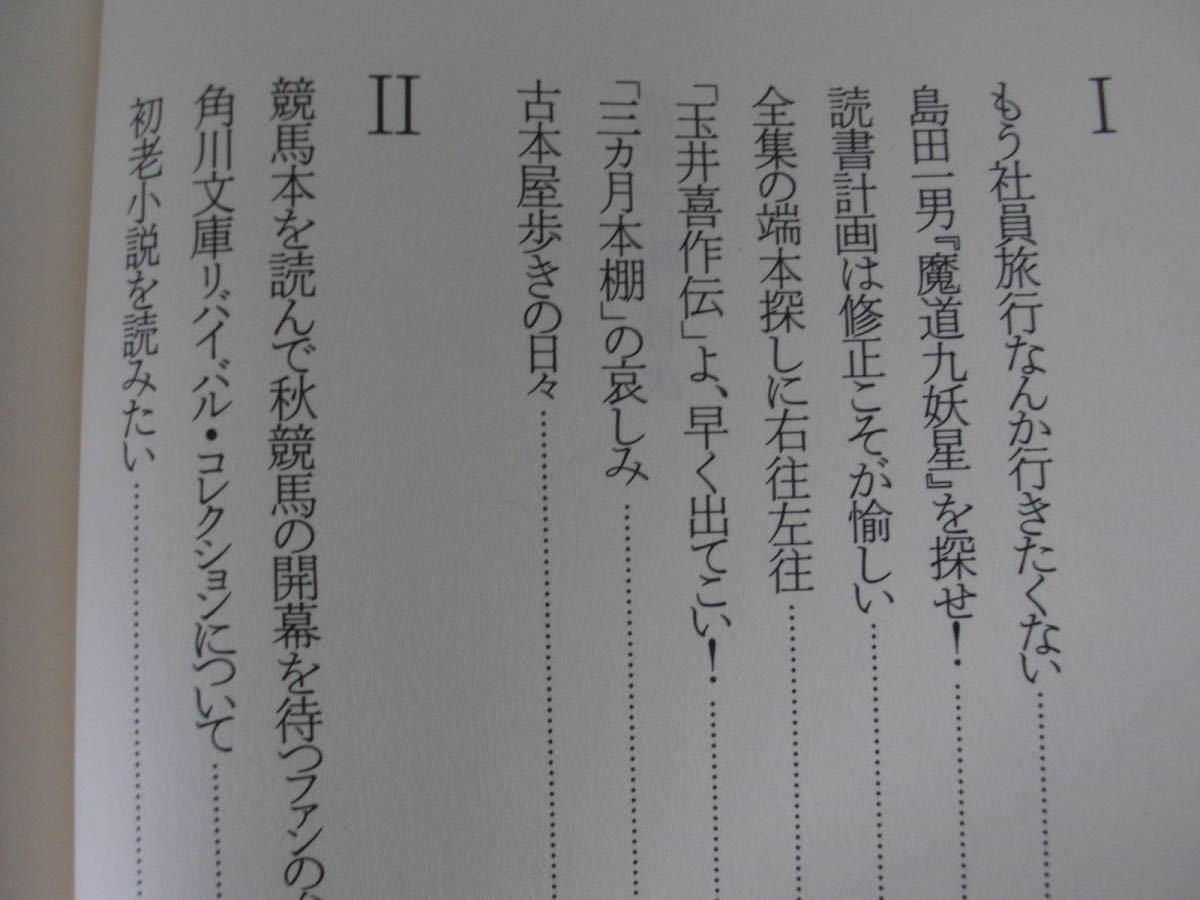 I
もう社員旅行なんか行きたくない
島田一男『魔道九妖星』を探せ!
読書計画は修正こそが愉しい
全集の端本探しに右往左往
「玉井喜作伝」よ、早く出てこい!
「三ヵ月本棚」の哀しみ
古本屋歩きの日々
II
競馬本を読んで秋競馬の開幕を待つファンの
角川文庫リバイバル・コレクションについて
初老小説を読みたい